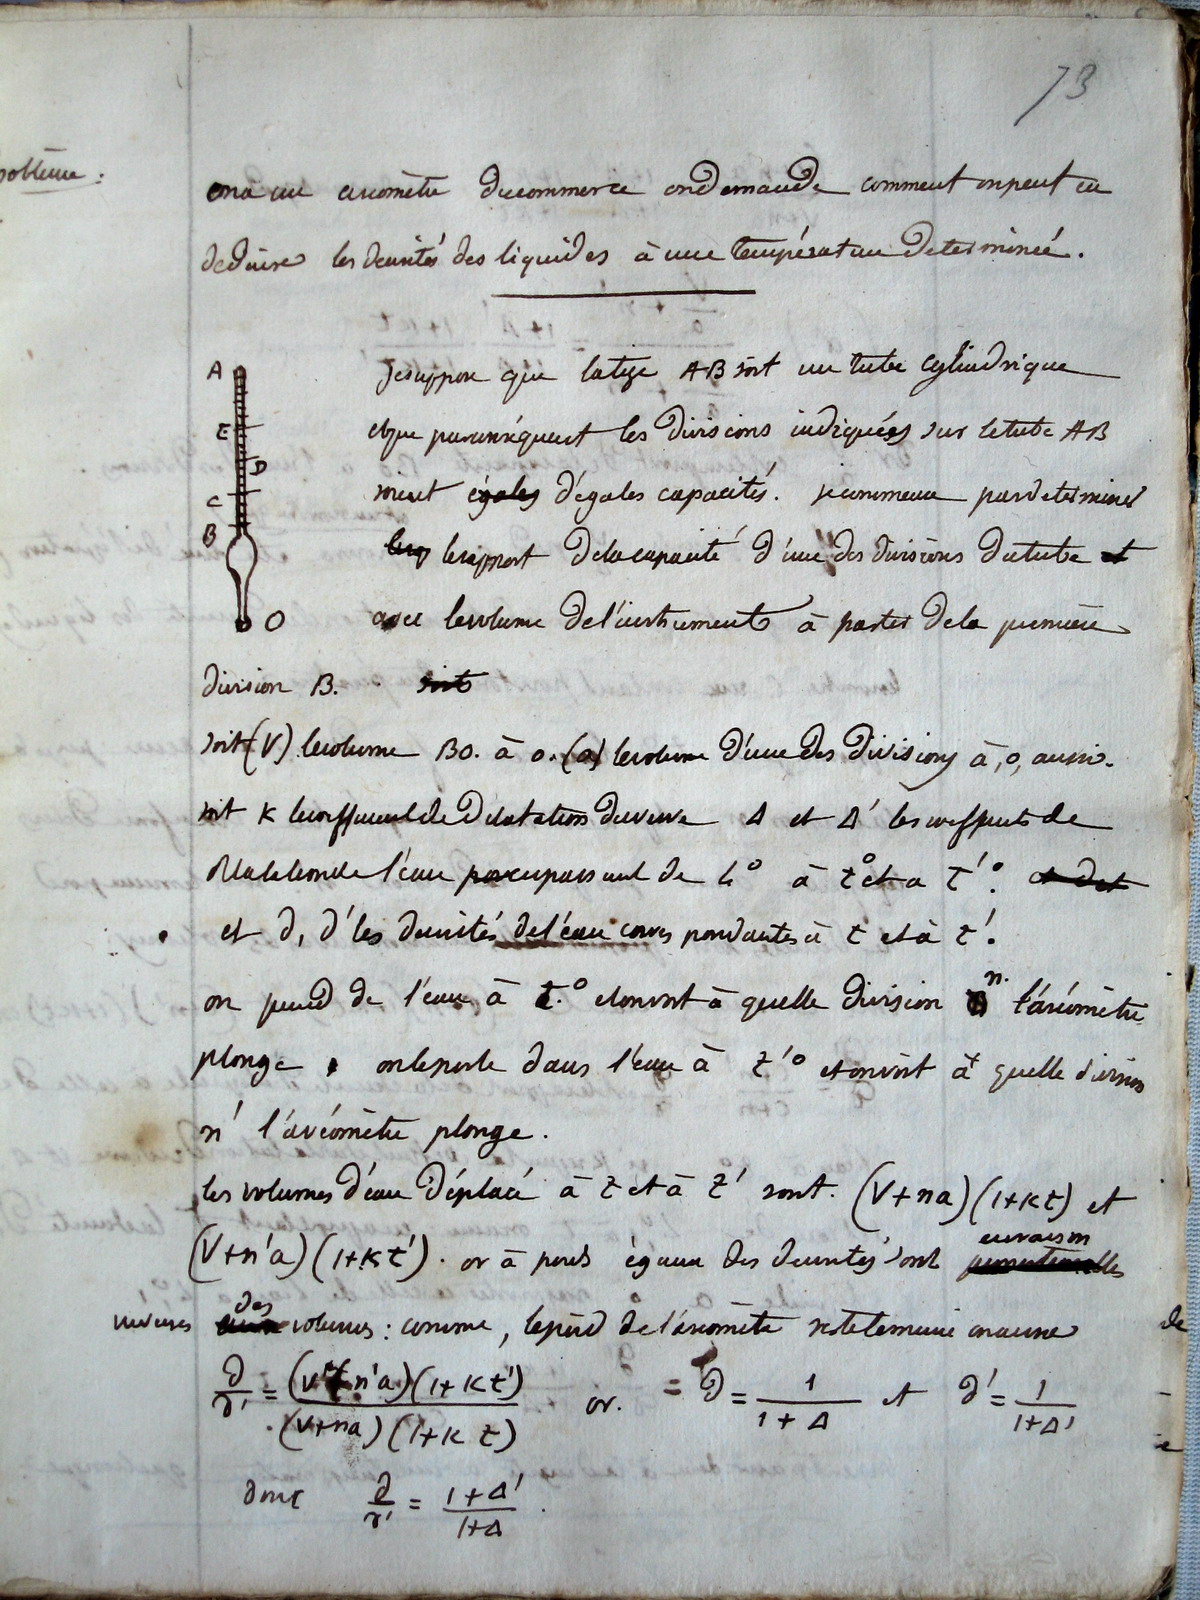 73
problème :
on a un aréomètre du commerce on demande comment on peut en
déduire les densités des liquides à une température determinée.
A
E
D
C
B
O
Je suppose que la tige AB soit un tube cylindrique
et que par conséquent les divisions indiquées sur le tube AB
soient égales d'égales capacités. je commence par determiner
le rapport de la capacité d'une des divisions du tube et
avec le volume de l'instrument à partir de la première
division B. soit
soit (V) le volume BO. à 0. (a) le volume d'une des divisions à, 0, aussi.
soit K le coefficient de dilatation du verre Δ et Δ' les coefficients de
dilatation de l'eau en passant de 4° à t° et a t'°. et d et
et d, d' les densités de l'eau correspondantes à t et à t'.
on prend de l'eau à t.° et on voit à quelle division n. l'aréomètre
plonge on le porte dans l'eau à t'° et on voit à quelle division
n' l'aréomètre plonge.
les volumes d'eau déplacé à t et à t' sont. (V+na)(1+Kt) et
(V+n'a)(1+Kt'). or à poids égaux des densités sont en raison
inverses des volumes : comme, le poid de l'aréomètre reste le même on aura
d/d' = (V+n'a)(1+Kt')/(V+na)(1+Kt) or. = d = 1/(1+Δ) et d' = 1/(1+Δ')
donc d/d' = (1+Δ')/(1+Δ).